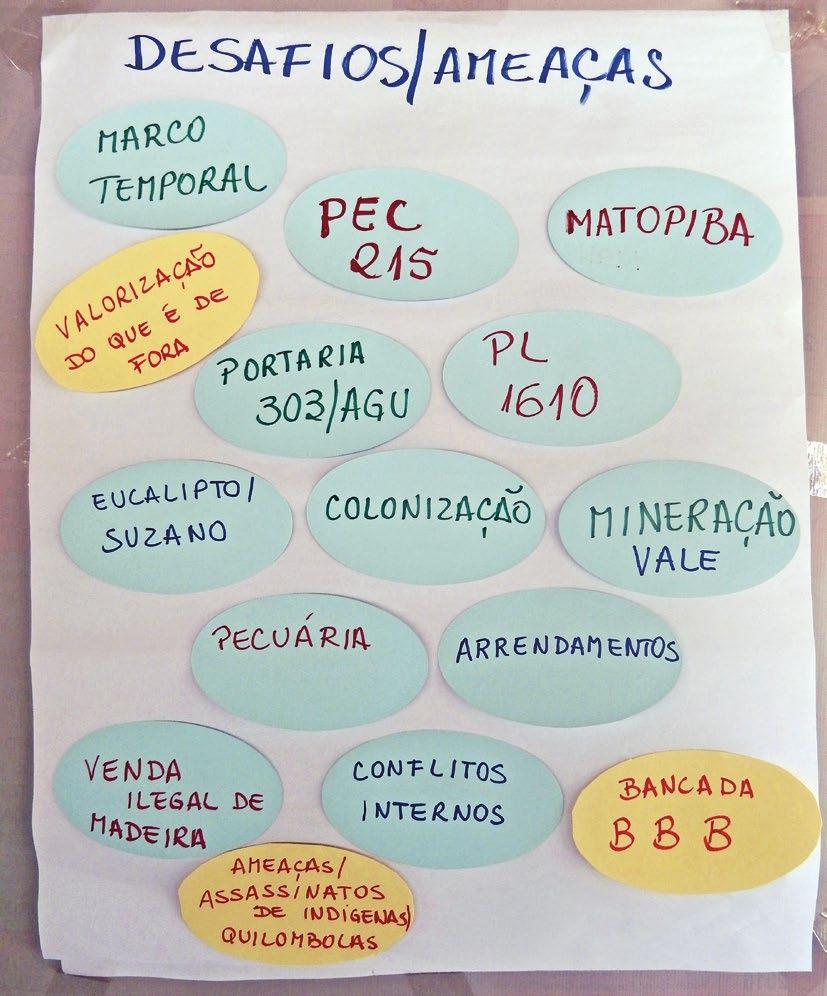 DESAFIOS/AMEAÇAS
MARCO
TEMPORAL
PEC
215
MATOPIBA
VALORIZAÇÃO
DO QUE É DE
FORA
PORTARIA
303/AGU
PL
1610
EUCALIPTO/
SUZANO
COLONIZAÇÃO
MINERAÇÃO
VALE
PECUÁRIA
ARRENDAMENTOS
VENDA
ILEGAL DE
MADEIRA
CONFLITOS
INTERNOS
BANCADA
B B B
AMEAÇAS/
ASSASSINATOS
DE INDÍGENAS/
QUILOMBOLAS